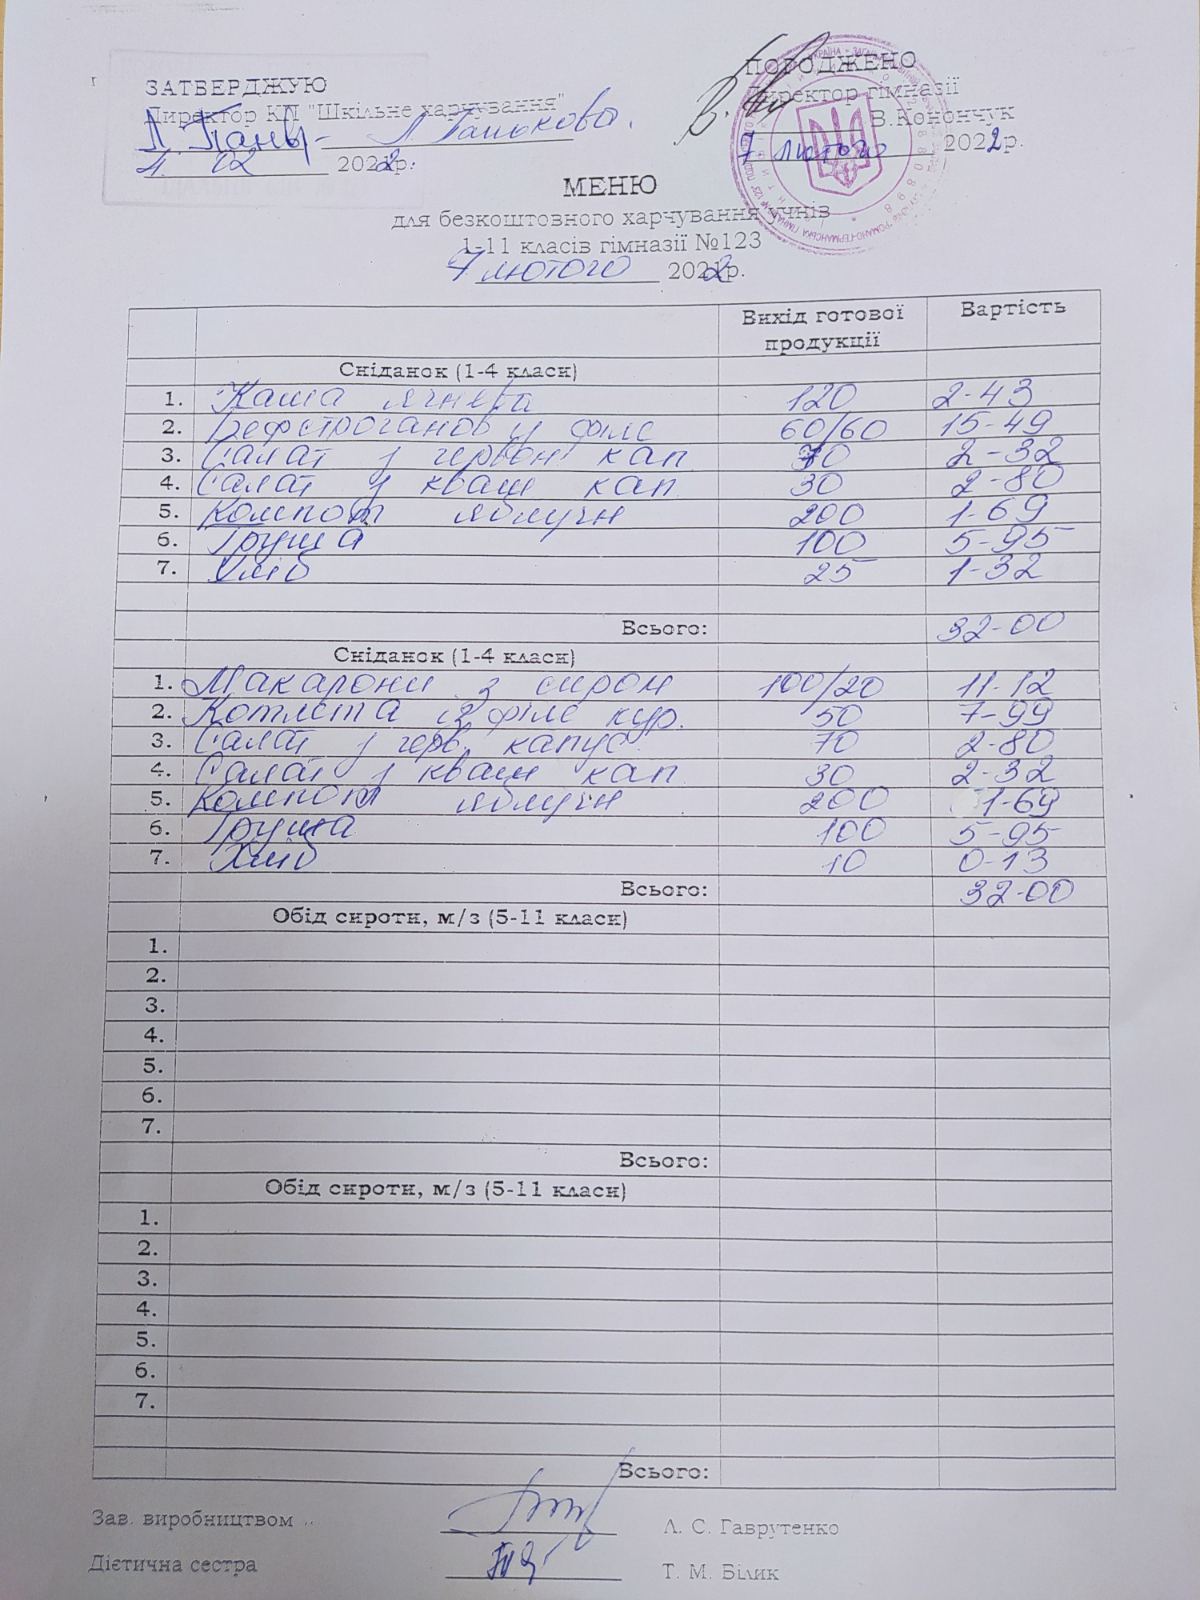 ЗАТВЕРДЖУЮ
Директор КП "Шкільне харчування"
Л. Панькова.
4. 02 2022р.
ПОГОДЖЕНО
Директор гімназії
В.Конончук
7 лютого 2022р.
МЕНЮ
для безкоштовного харчування учнів
1-11 класів гімназії №123
7 лютого 2022р.
Вихід готової продукції Вартість
Сніданок (1-4 класи)
1. Каша ячнева 120 2-43
2. Бефстроганов із філе 60/60 15-49
3. Салат з червон кап 70 2-32
4. Салат з кваш кап. 30 2-80
5. Компот яблучн 200 1-69
6. Груша 100 5-95
7. Хліб 25 1-32
Всього: 32-00
Сніданок (1-4 класи)
1. Макарони з сиром 100/20 11-12
2. Котлета із філе кур. 50 7-99
3. Салат з черв. капус. 70 2-80
4. Салат з кваш кап. 30 2-32
5. Компот яблучн 200 1-69
6. Груша 100 5-95
7. Хліб 10 0-13
Всього: 32-00
Обід сироти, м/з (5-11 класи)
1.
2.
3.
4.
5.
6.
7.
Всього:
Обід сироти, м/з (5-11 класи)
1.
2.
3.
4.
5.
6.
7.
Всього:
Зав. виробництвом Л. С. Гаврутенко
Дієтична сестра Т. М. Білик